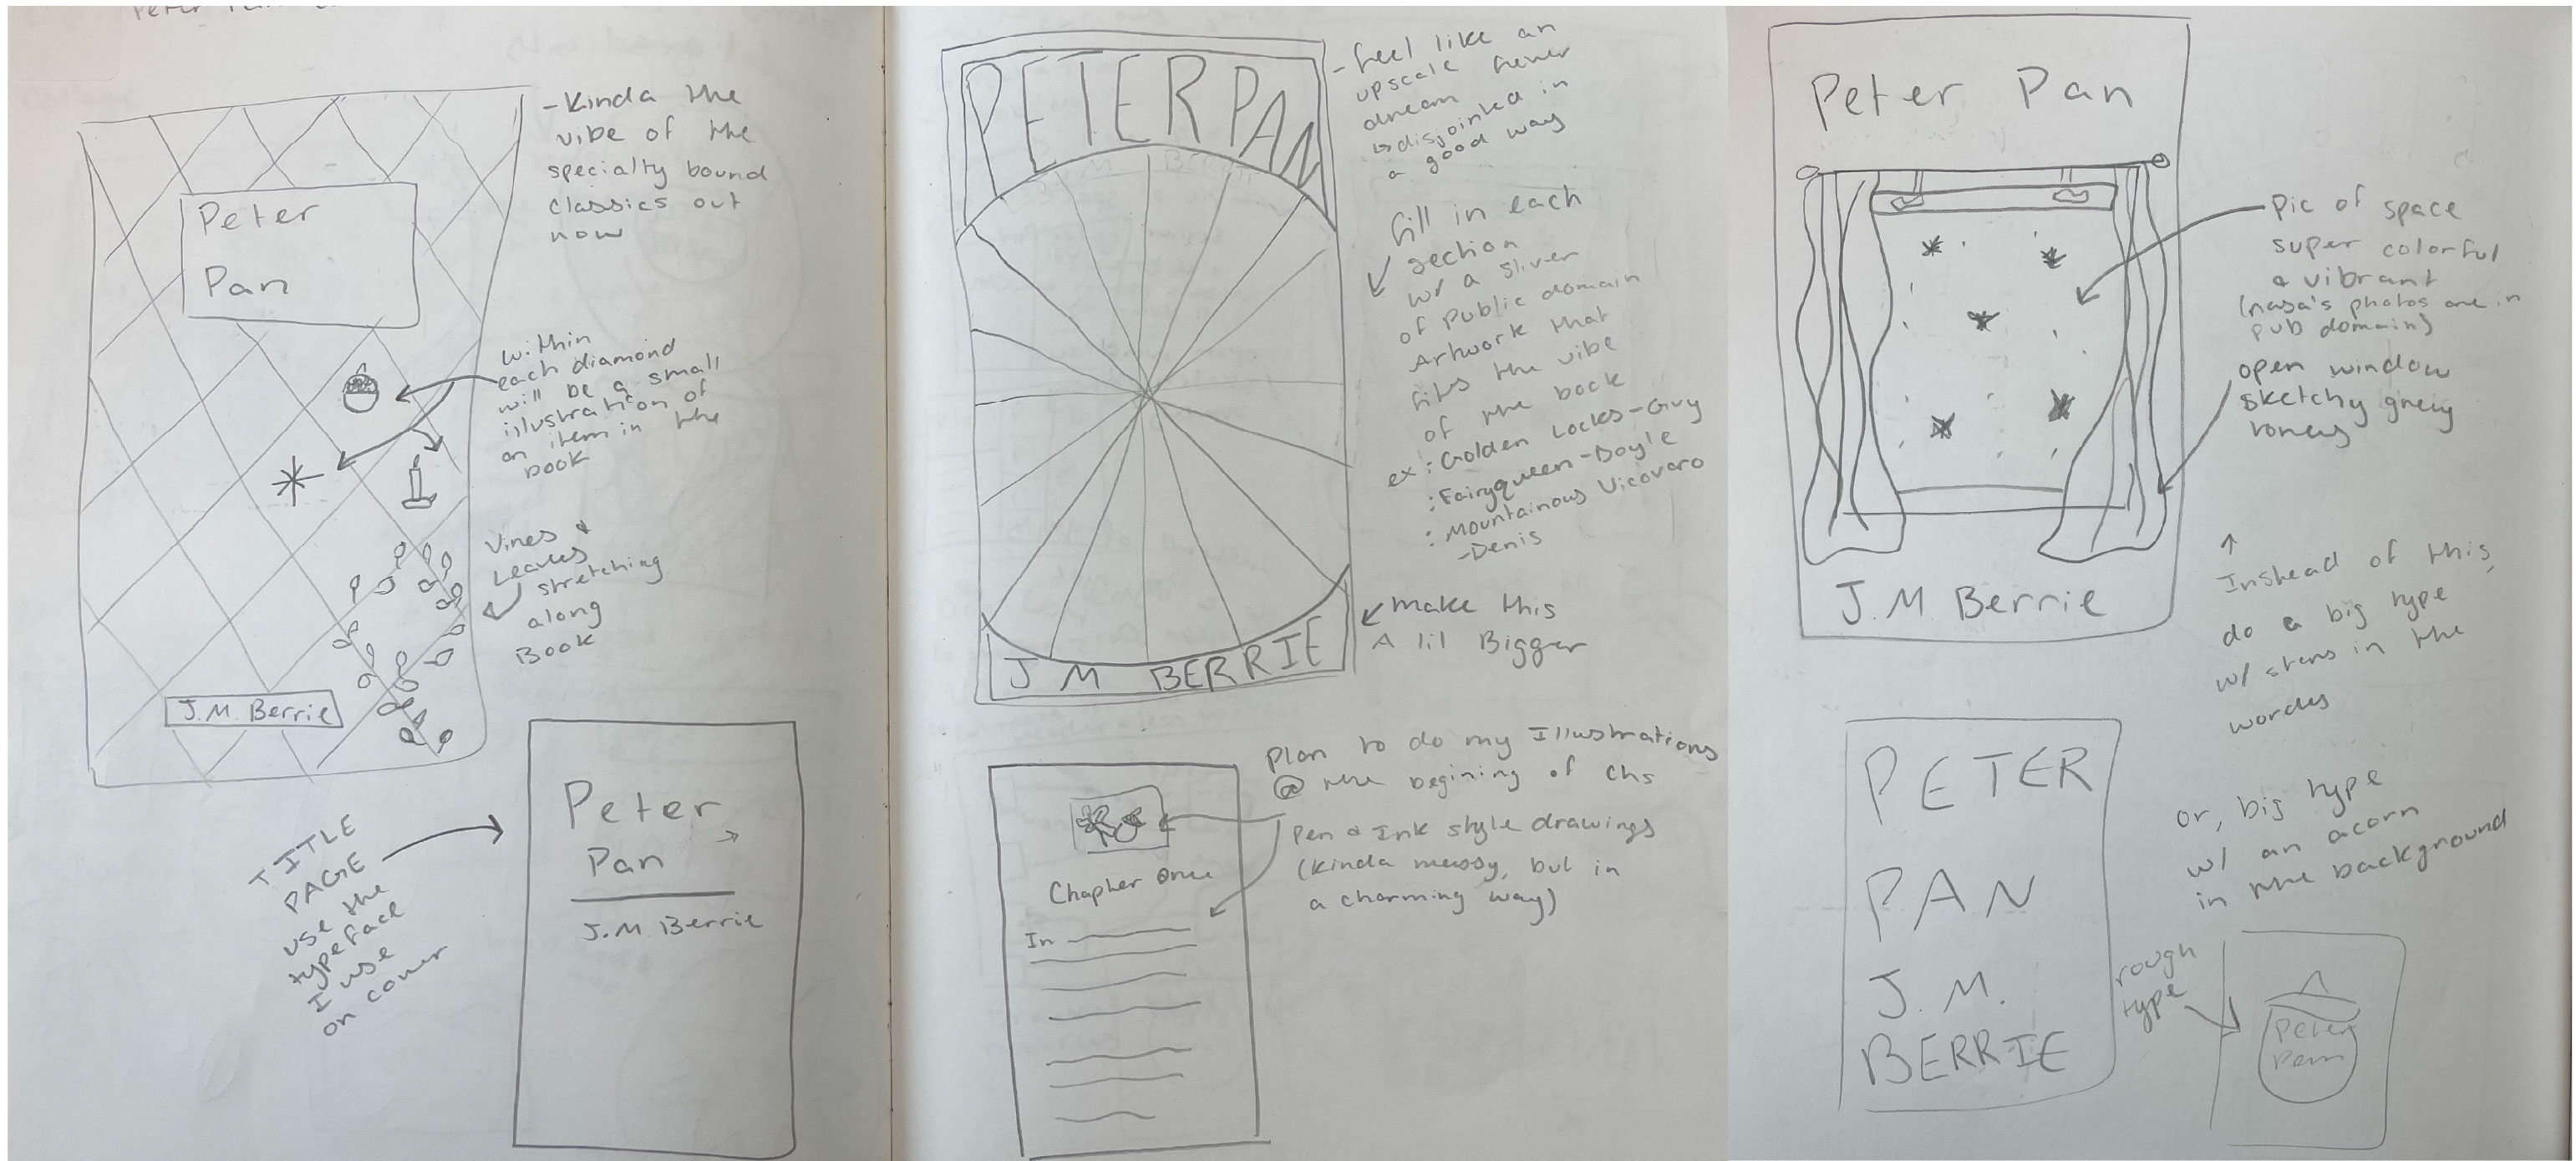 Peter Pan
Peter
Pan
-Kinda the
vibe of the
specialty bound
classics out
now
within
each diamond
will be a small
illustration of
an item in the
book
Vines &
Leaves
stretching
along
Book
J.M. Berrie
TITLE
PAGE
use the
typeface
I use
on cover
Peter
Pan
J.M Berrie
PETER PAN
-feel like an
upscale fever
dream
↳disjointed in
a good way
fill in each
section
w/ a sliver
of Public domain
Artwork that
fits the vibe
of the book
ex: Golden Locks-Guy
: Fairyqueen-Doyle
: Mountainous Vicovaro
-Denis
make this
A lil Bigger
J M BERRIE
Plan to do my Illustrations
@ the begining of chs
Pen & Ink style drawings
(Kinda messy, but in
a charming way)
Chapter One
In
Peter Pan
Pic of space
super colorful
& vibrant
(nasa's photos are in
pub domain)
open window
sketchy grey
tones
J.M Berrie
Instead of this,
do a big type
w/ stars in the
words
PETER
PAN
J.M.
BERRIE
or, big type
w/ an acorn
in the background
rough
type
Peter
Pan